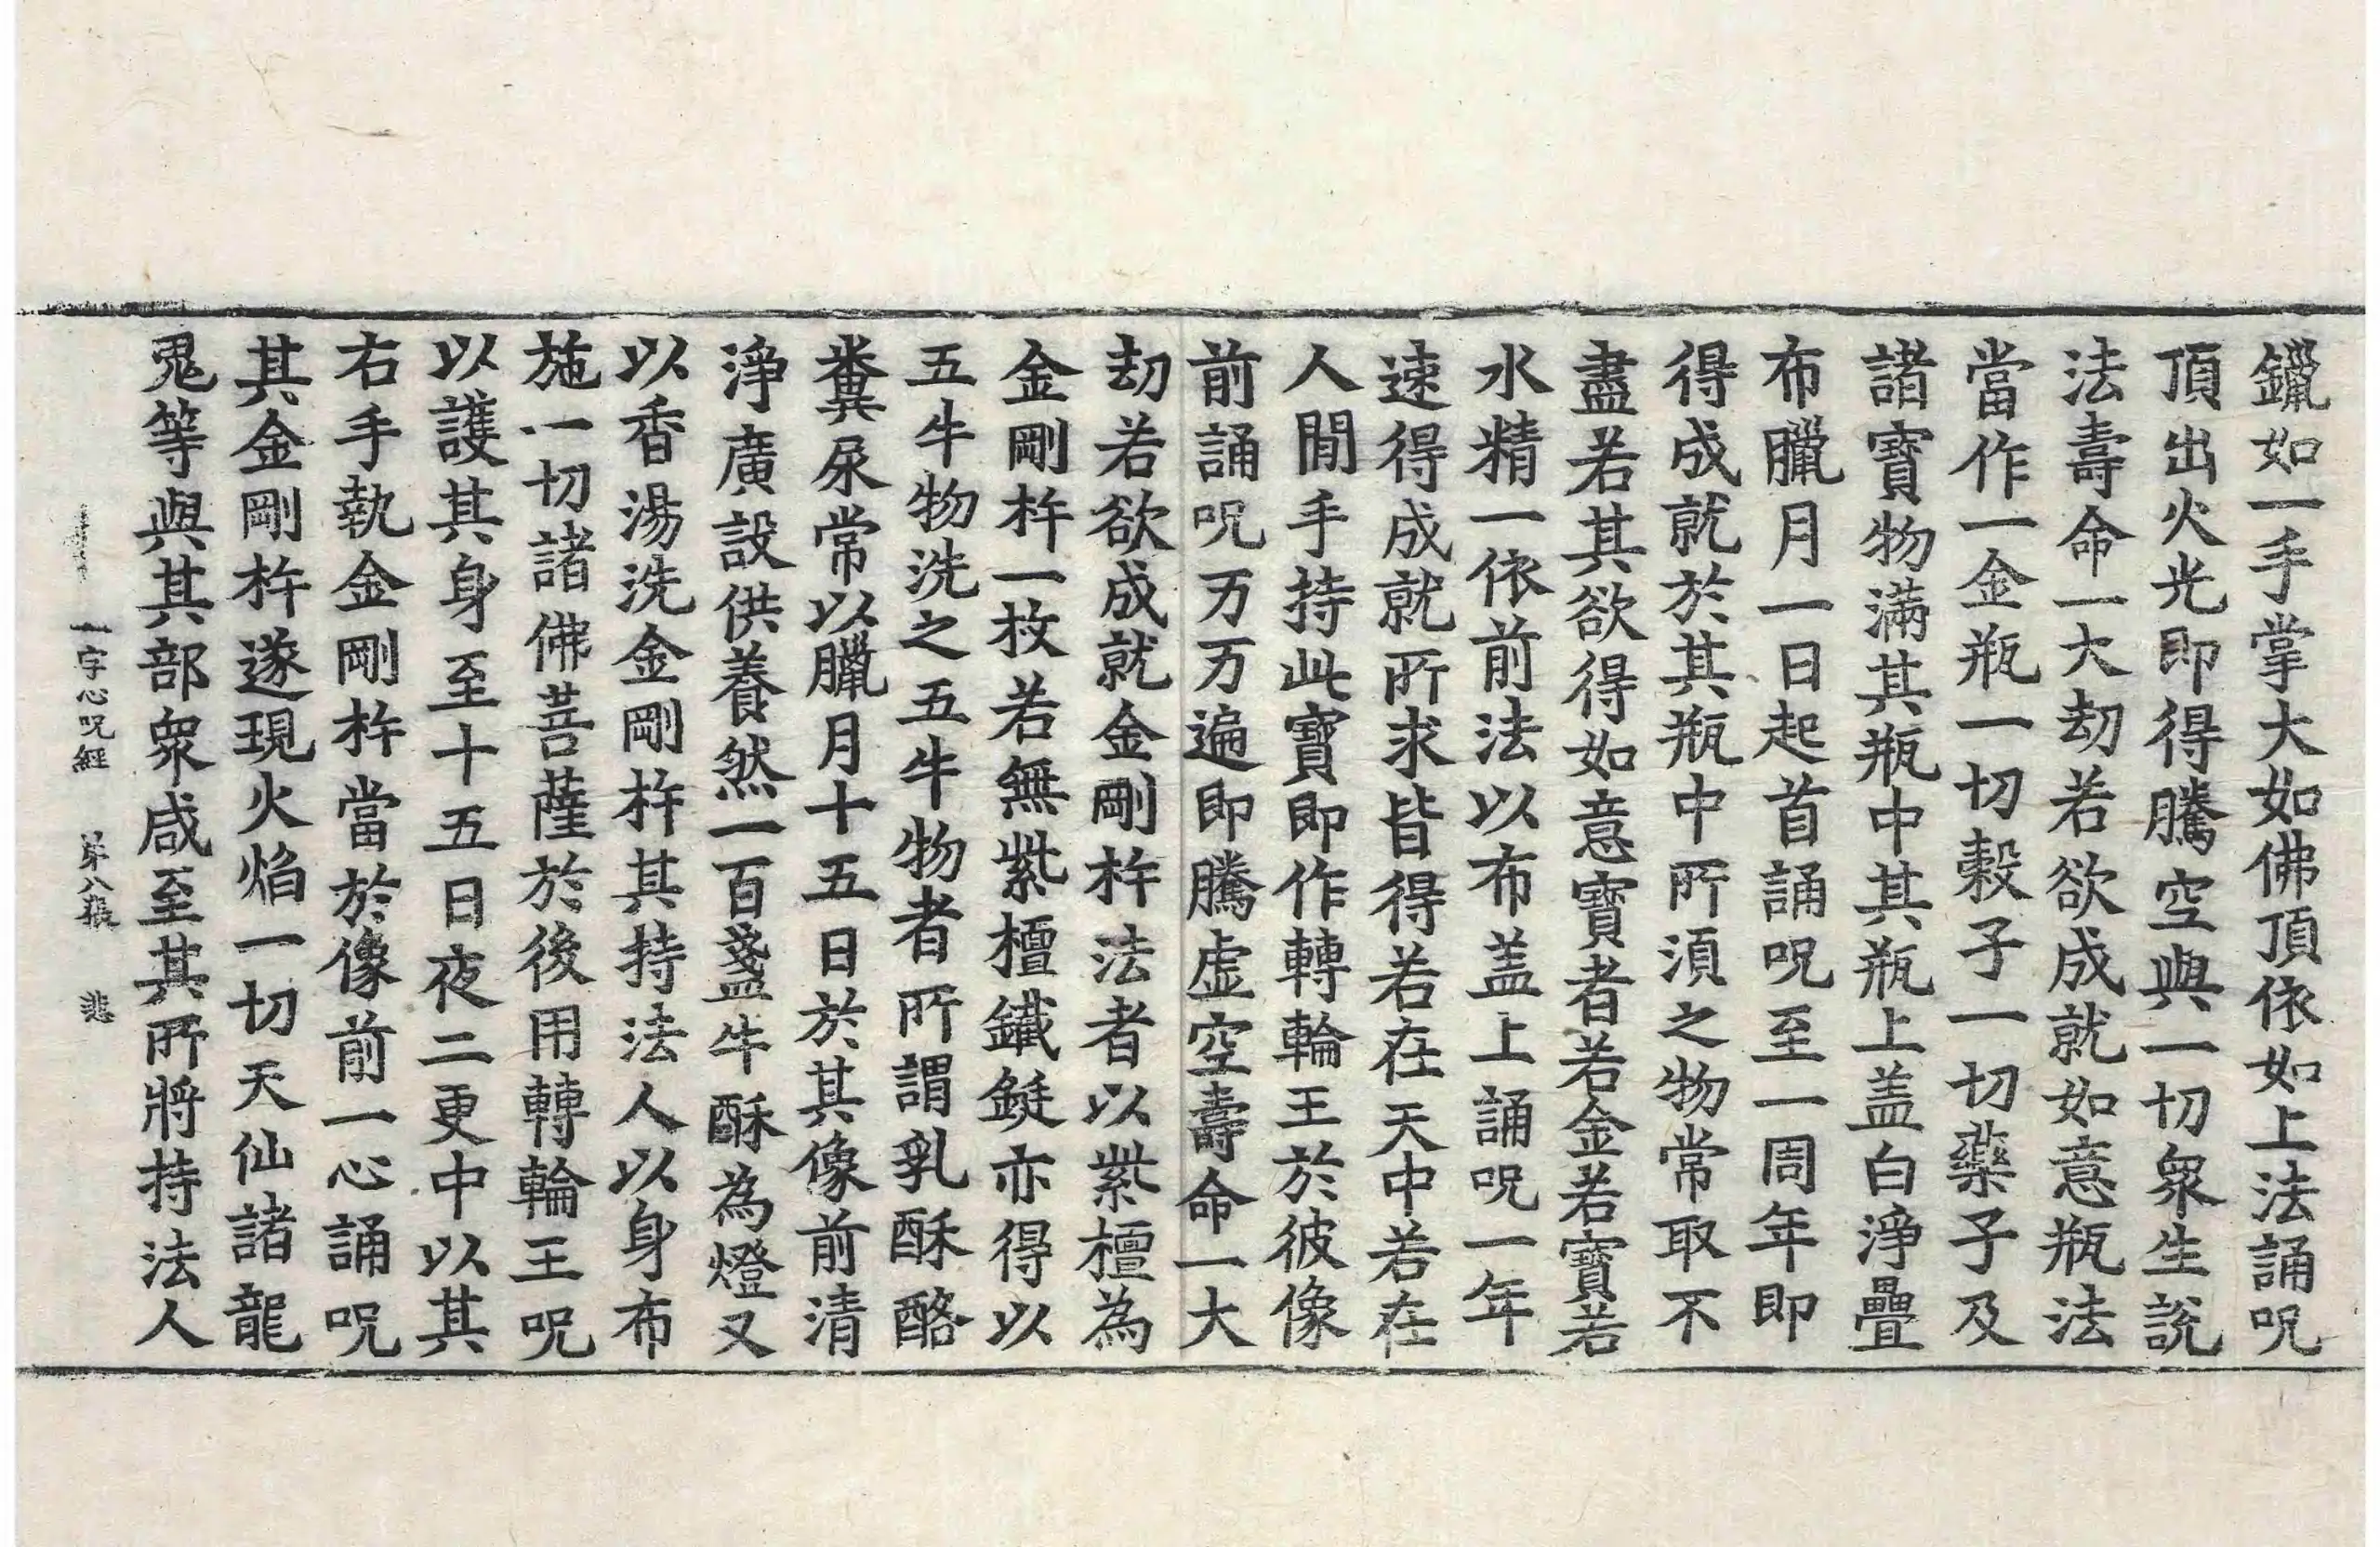 鑞如一手掌大如佛頂依如上法誦呪
頂出火光即得騰空與一切衆生說
法壽命一大劫若欲成就如意瓶法
當作一金瓶一切穀子一切藥子及
諸寶物滿其瓶中其瓶上盖白淨疊
布臘月一日起首誦呪至一周年即
得成就於其瓶中所湏之物常取不
盡若其欲得如意寶者若金若寶若
水精一依前法以布盖上誦呪一年
速得成就所求皆得若在天中若在
人閒手持此寶即作轉輪王於彼像
前誦呪万万遍即騰虛空壽命一大
劫若欲成就金剛杵法者以紫檀為
金剛杵一枚若無紫檀鑯鋌亦得以
五牛物洗之五牛物者所謂乳酥酪
糞尿常以臘月十五日於其像前清
淨廣設供養然一百盞牛酥為燈又
以香湯洗金剛杵其持法人以身布
施一切諸佛菩薩於後用轉輪王呪
以護其身至十五日夜二更中以其
右手執金剛杵當於像前一心誦呪
其金剛杵遂現火焰一切天仙諸龍
鬼等與其部衆咸至其所將持法人
一字心呪經 苐八張 悲